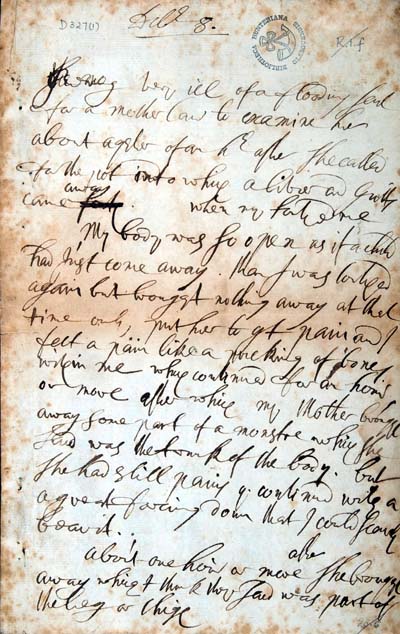 D327(1)
Decbr 8.
R.1.f
BIBLIOTHECA HUNTERIANA
being very ill of a flooding send
for a mother law to examine her
about a qr of an hr after she called
for the pot into which a liver and guts
came away. when my
My body was so open as if a child
had just come away. then I was
again but brought nothing away at that
time only put her to gt pain and I
felt a pain like a pricking of bones
within me which continued for an hour
or more after which my Mother brought
away some part of a monstre which she
said was the trunk of the body. but
she had still pains yt continued with a
great forcing down that I could scarce
bear it..
about one hour or more after she brought
away which I think they said was part of
the leg or thigh